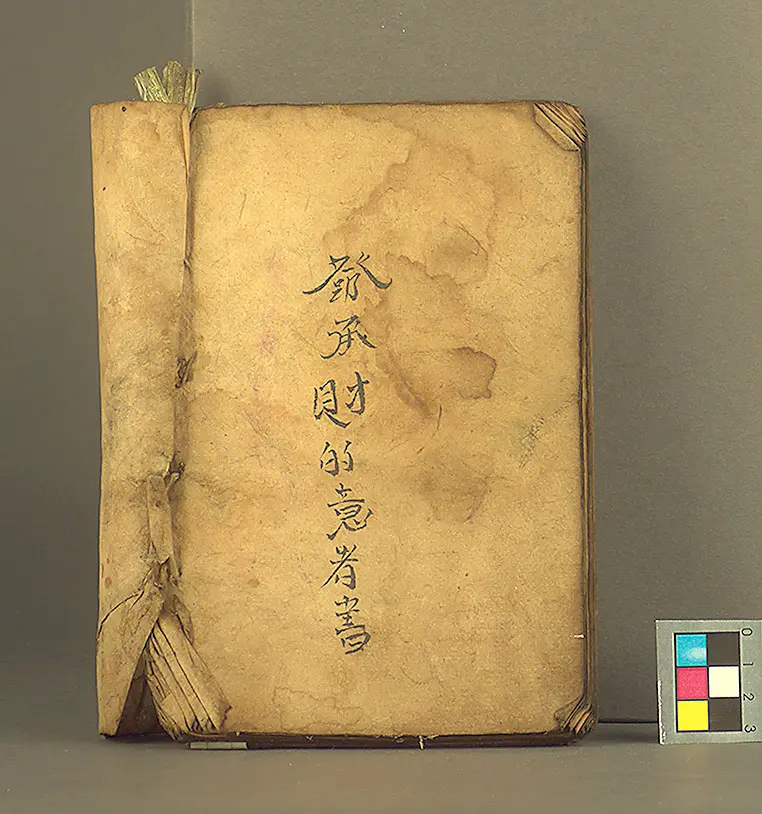 發承財的意者書
0 1 2 3